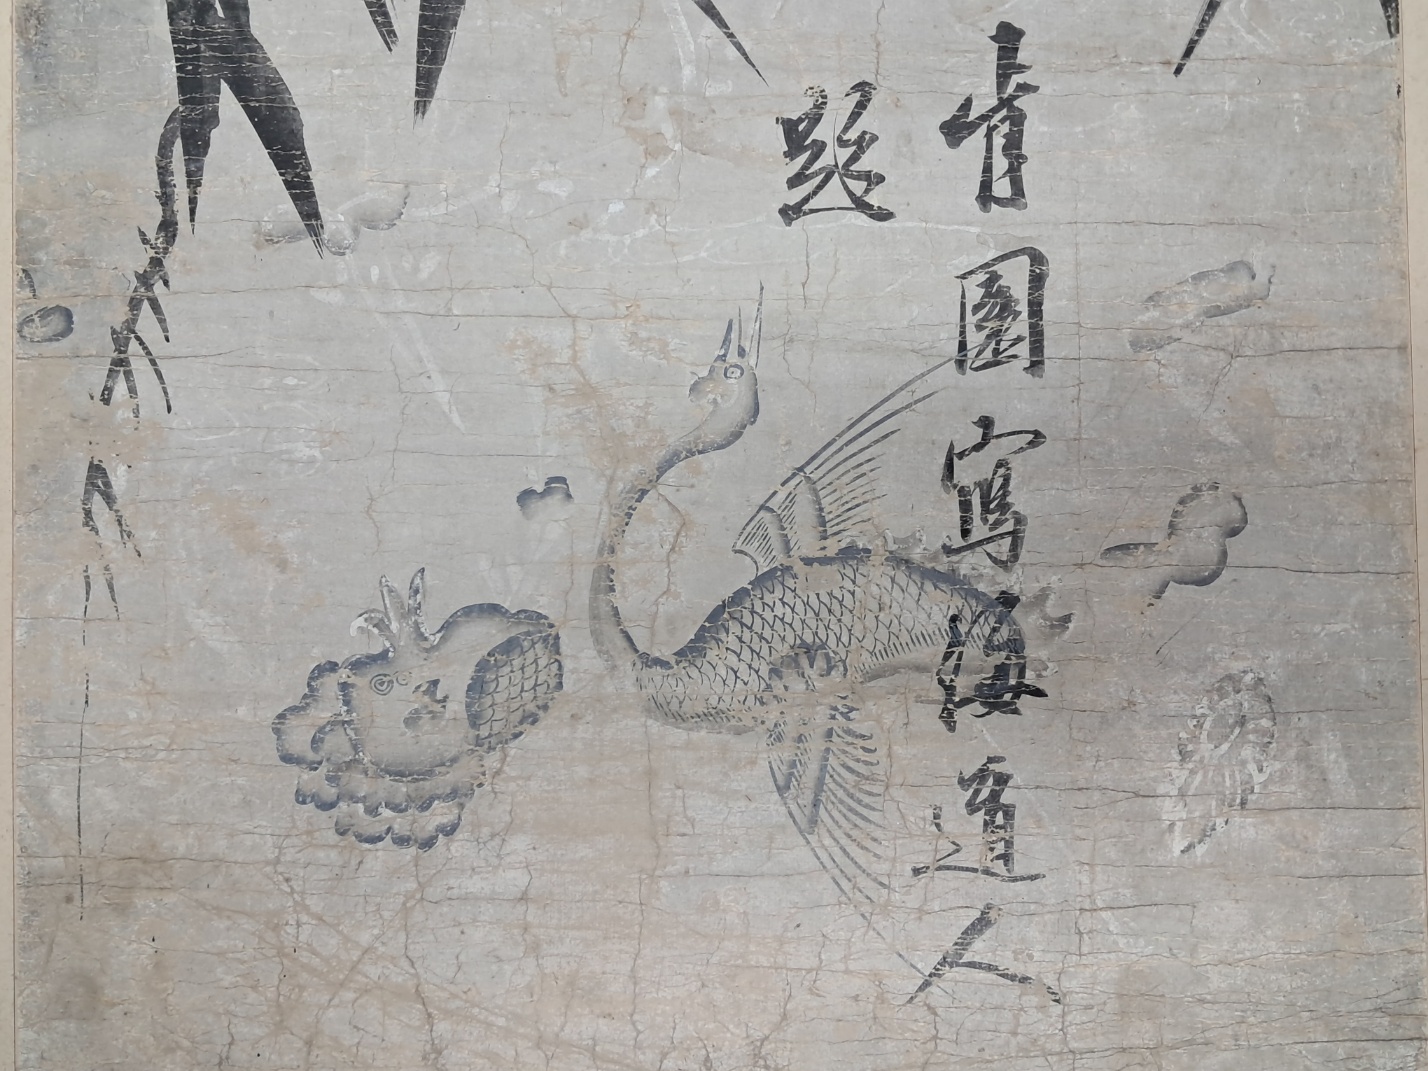 肯園寫海道人
題